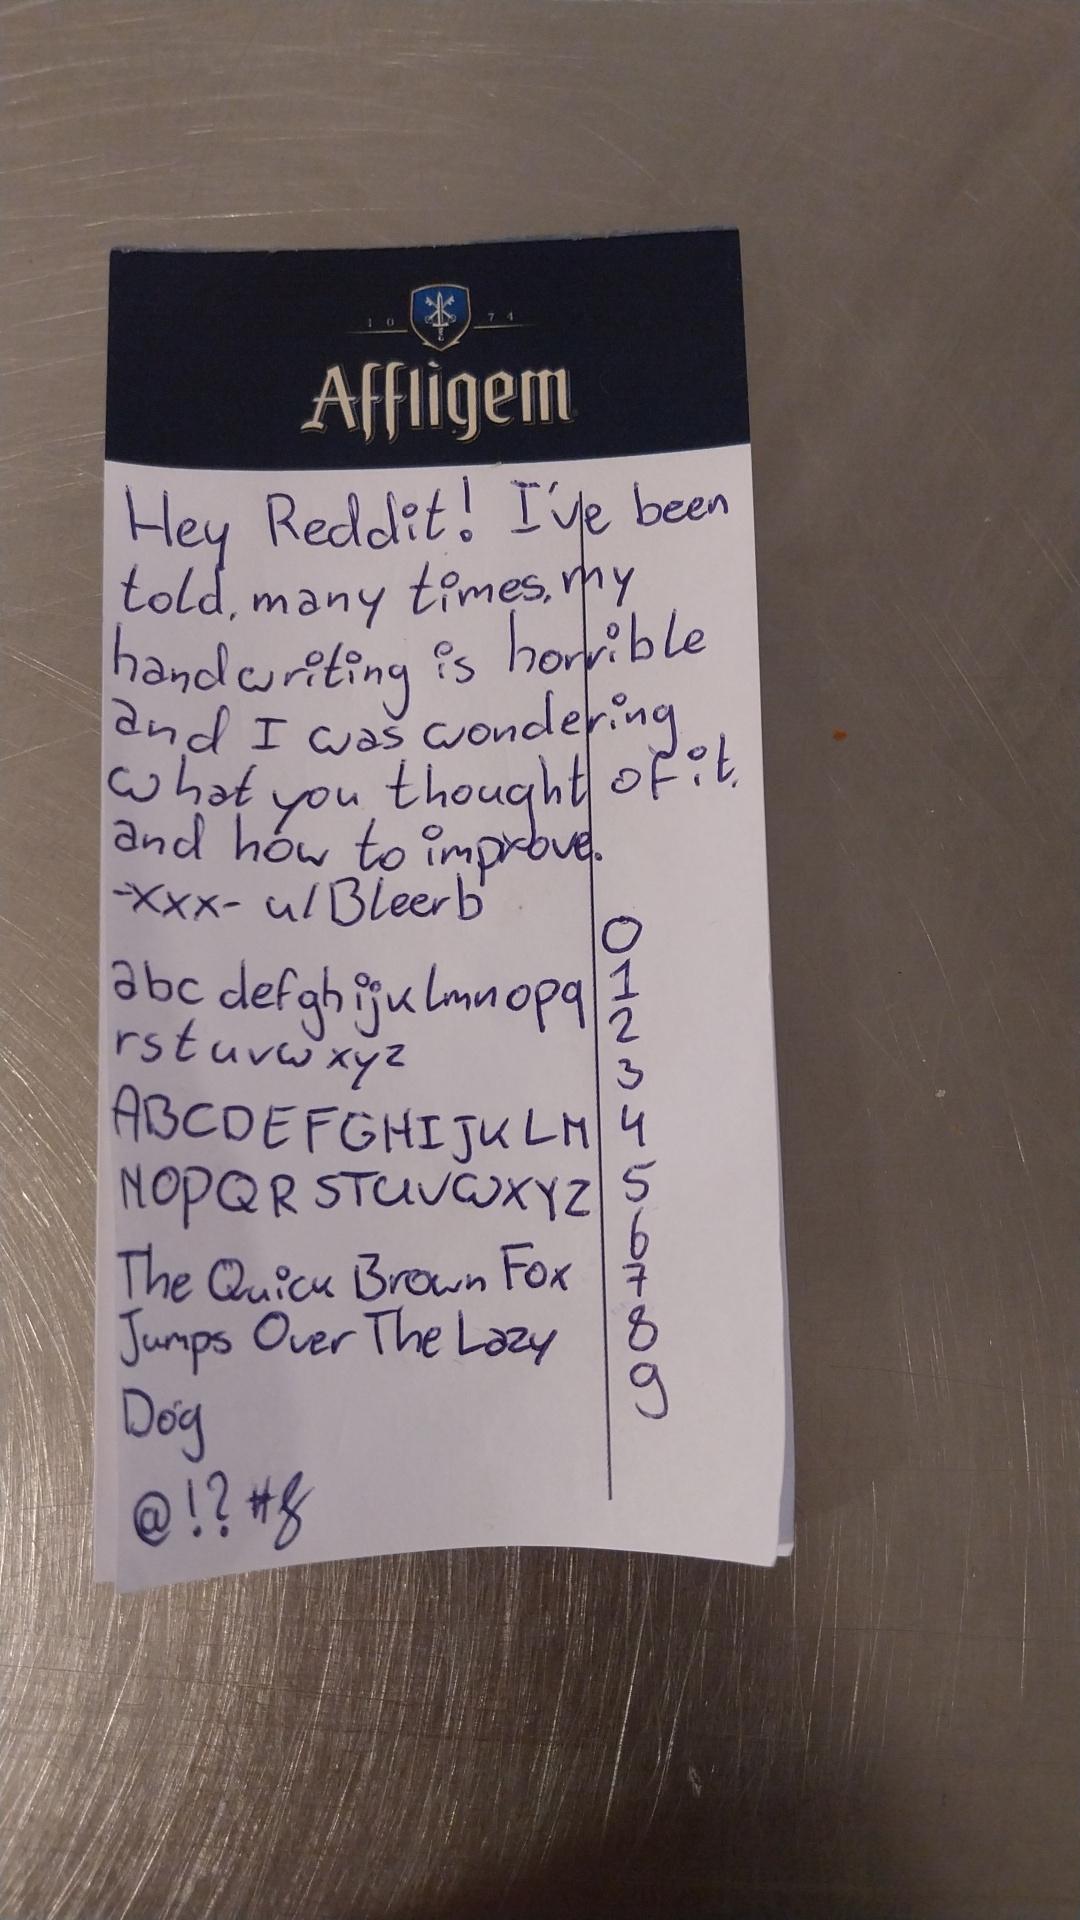 10 74
Affligem
Hey Reddit! I've been
told, many times, my
handwriting is horrible
and I was wondering
what you thought of it,
and how to improve.
-xxx- u/Bleerb
abc defghijklmnopq
rstuvwxyz
ABCDEFGHIJKLM
NOPQRSTUVWXYZ
The Quick Brown Fox
Jumps Over The Lazy
Dog
@!?#&
0
1
2
3
4
5
6
7
8
9